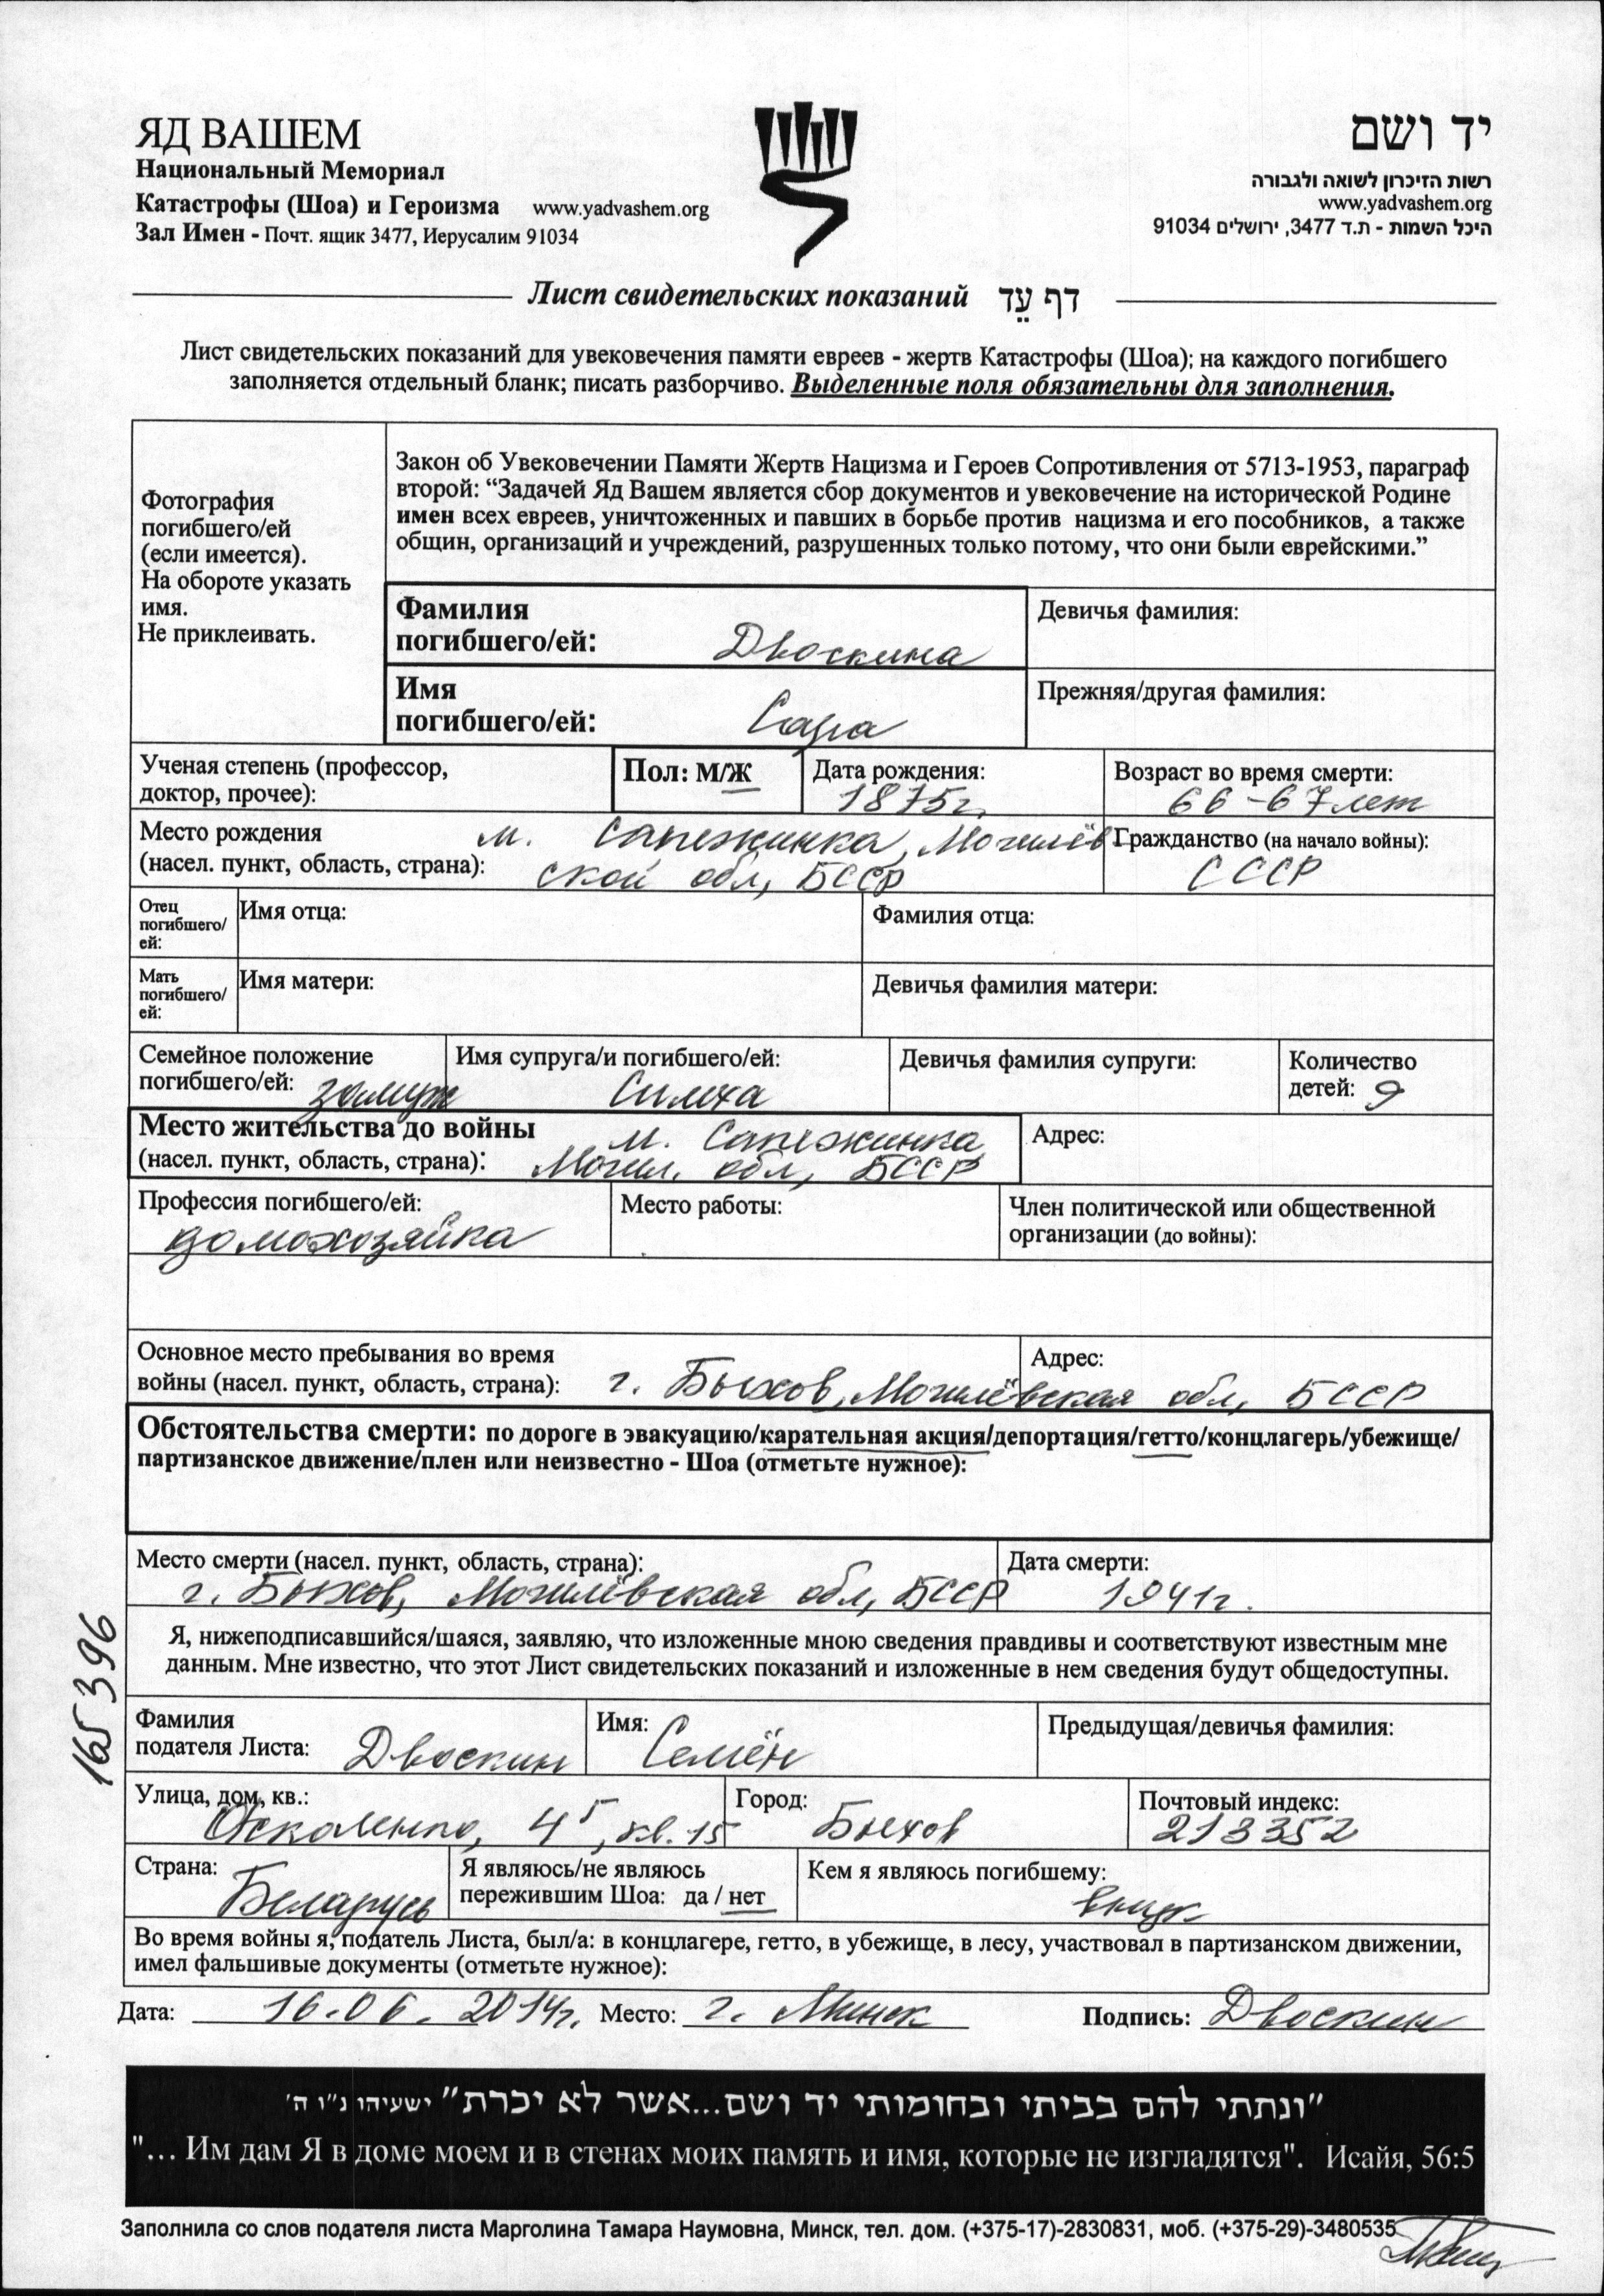 ЯД ВАШЕМ
Национальный Мемориал
Катастрофы (Шоа) и Героизма www.yadvashem.org
Зал Имен - Почт. ящик 3477, Иерусалим 91034
יד ושם
רשות הזיכרון לשואה ולגבורה
www.yadvashem.org
היכל השמות - ת.ד 3477, ירושלים 91034
Лист свидетельских показаний דף עֵד
Лист свидетельских показаний для увековечения памяти евреев - жертв Катастрофы (Шоа); на каждого погибшего
заполняется отдельный бланк; писать разборчиво. Выделенные поля обязательны для заполнения.
Фотография
погибшего/ей
(если имеется).
На обороте указать
имя.
Не приклеивать.
Закон об Увековечении Памяти Жертв Нацизма и Героев Сопротивления от 5713-1953, параграф
второй: “Задачей Яд Вашем является сбор документов и увековечение на исторической Родине
имен всех евреев, уничтоженных и павших в борьбе против нацизма и его пособников, а также
общин, организаций и учреждений, разрушенных только потому, что они были еврейскими.”
Фамилия
погибшего/ей: Двоскина
Девичья фамилия:
Имя
погибшего/ей: Сара
Прежняя/другая фамилия:
Ученая степень (профессор,
доктор, прочее):
Пол: М/Ж
Дата рождения:
1875г.
Возраст во время смерти:
66-67 лет
Место рождения м. Сапежинка, Могилёв
(насел. пункт, область, страна): ской обл, БССР
Гражданство (на начало войны):
СССР
Отец
погибшего/
ей:
Имя отца:
Фамилия отца:
Мать
погибшего/
ей:
Имя матери:
Девичья фамилия матери:
Семейное положение
погибшего/ей: замуж
Имя супруга/и погибшего/ей:
Симха
Девичья фамилия супруги:
Количество
детей: 9
Место жительства до войны м. Сапежинка
(насел. пункт, область, страна): Могил. обл, БССР
Адрес:
Профессия погибшего/ей:
домохозяйка
Место работы:
Член политической или общественной
организации (до войны):
Основное место пребывания во время
войны (насел. пункт, область, страна): г. Быхов, Могилёвская обл, БССР
Адрес:
Обстоятельства смерти: по дороге в эвакуацию/карательная акция/депортация/гетто/концлагерь/убежище/
партизанское движение/плен или неизвестно - Шоа (отметьте нужное):
Место смерти (насел. пункт, область, страна):
г. Быхов, Могилёвская обл, БССР
Дата смерти:
1941г.
165396
Я, нижеподписавшийся/шаяся, заявляю, что изложенные мною сведения правдивы и соответствуют известным мне
данным. Мне известно, что этот Лист свидетельских показаний и изложенные в нем сведения будут общедоступны.
Фамилия
подателя Листа: Двоскин
Имя:
Семён
Предыдущая/девичья фамилия:
Улица, дом, кв.:
кв. 15
Город:
Быхов
Почтовый индекс:
213352
Страна:
Беларусь
Я являюсь/не являюсь
пережившим Шоа: да / нет
Кем я являюсь погибшему:
внук
Во время войны я, податель Листа, был/а: в концлагере, гетто, в убежище, в лесу, участвовал в партизанском движении,
имел фальшивые документы (отметьте нужное):
Дата: 16.06.2014г. Место: г. Минск Подпись: Двоскин
”ונתתי להם בביתי ובחומותי יד ושם...אשר לא יכרת” ישעיהו נ"ו ה'
"... Им дам Я в доме моем и в стенах моих память и имя, которые не изгладятся". Исайя, 56:5
Заполнила со слов подателя листа Марголина Тамара Наумовна, Минск, тел. дом. (+375-17)-2830831, моб. (+375-29)-3480535